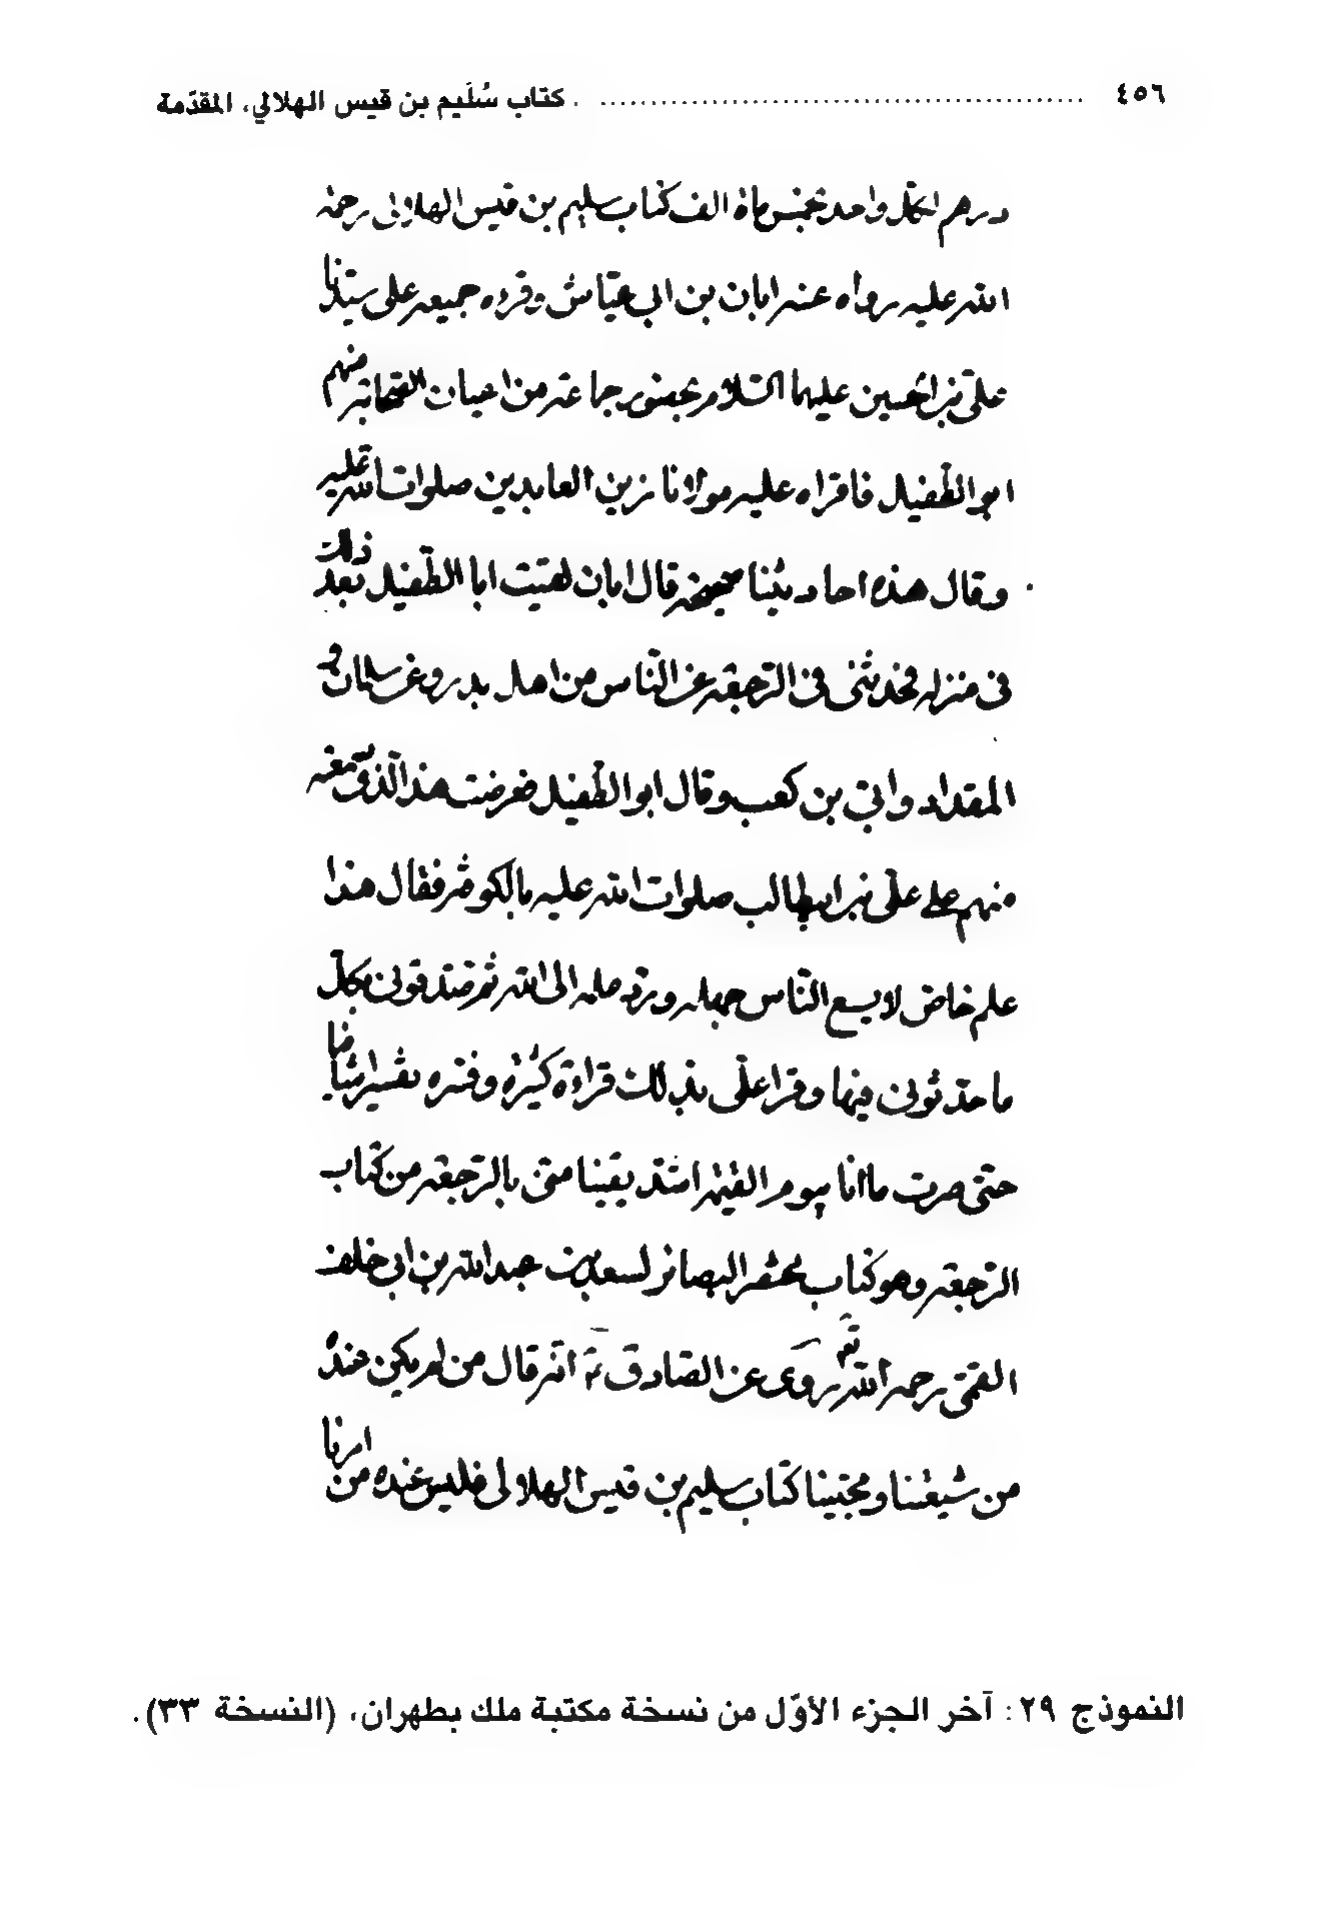 ٤٥٦ ........................................ كتاب سُلَيم بن قيس الهلالي، المقدّمة
درهم لكلّ واحد خمس ماة الف كتاب سليم بن قيس الهلالى رحمة
الله عليه رواه عنه ابان بن ابى عيّاش وقرءه جميعه على سيّدنا
علىّ بن الحسين عليهما السّلام بحضور جماعة من اعيان الصّحابة منهم
ابو الطّفيل فاقراه عليه مولانا زين العابدين صلوات الله عليه
وقال هذه احاديثنا صحيحة قال ابان لقيت ابا الطّفيل بعد ذلك
فى منزله فحدّثنى فى الرّجعة عن النّاس من اهل بدر وعن سلمان و
المقداد وابىّ بن كعب وقال ابو الطّفيل فعرضت هذا الّذى سمعته
منهم على علىّ بن ابيطالب صلوات الله عليه بالكوفة فقال هذا
علم خاصّ لا يسع النّاس جهله وردّ علمه الى الله ثم صدّقونى بكلّ
ما حدّثونى فيها وقرا علىّ بذلك قراءة كثيرة وفسّره تفسيرا شافيا
حتّى صرت ما انا بيوم القيمة اشدّ يقينا منّى بالرّجعة من كتاب
الرّجعة وهو كتاب مختصر البصائر لسعد بن عبد الله بن ابى خلف
القمّى رحمه الله تعم روى عن الصّادق ع انّه قال من لم يكن عنده
من شيعتنا ومحبّينا كتاب سليم بن قيس الهلالى فليس عنده من امرنا
النموذج ٢٩: آخر الجزء الأوّل من نسخة مكتبة ملك بطهران، (النسخة ٣٣).